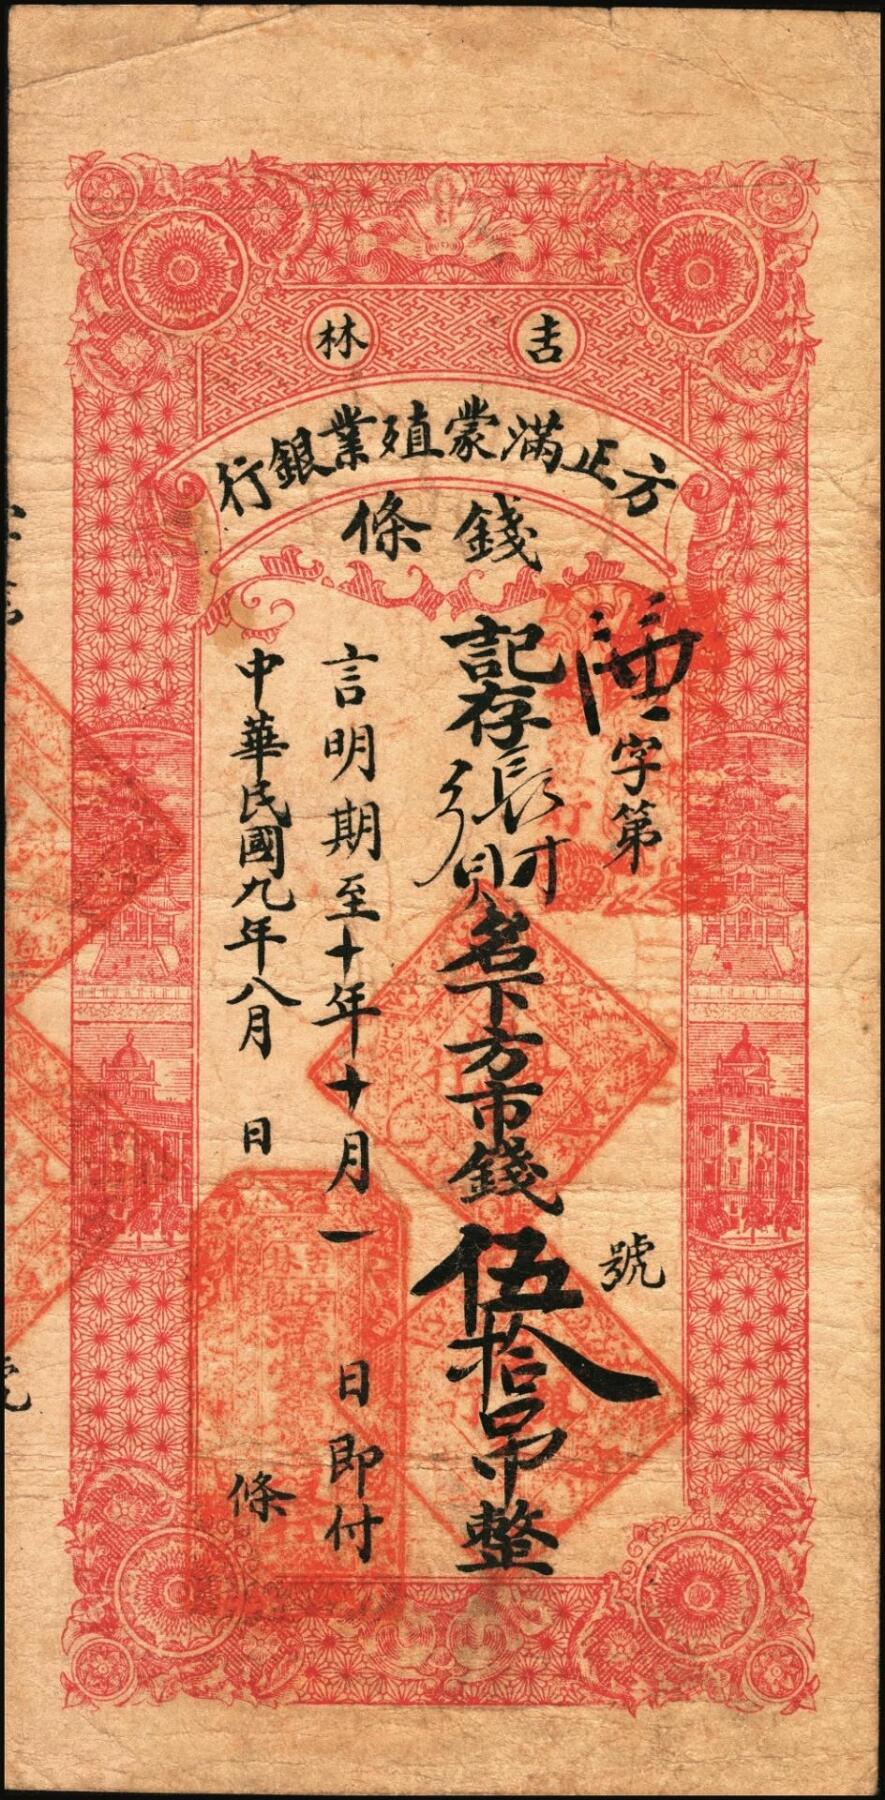 吉林
方正滿蒙殖業銀行
錢條
字第 號
記存張財名下方市錢伍拾吊整
言明期至十年十月一日即付
中華民國九年八月 日 條